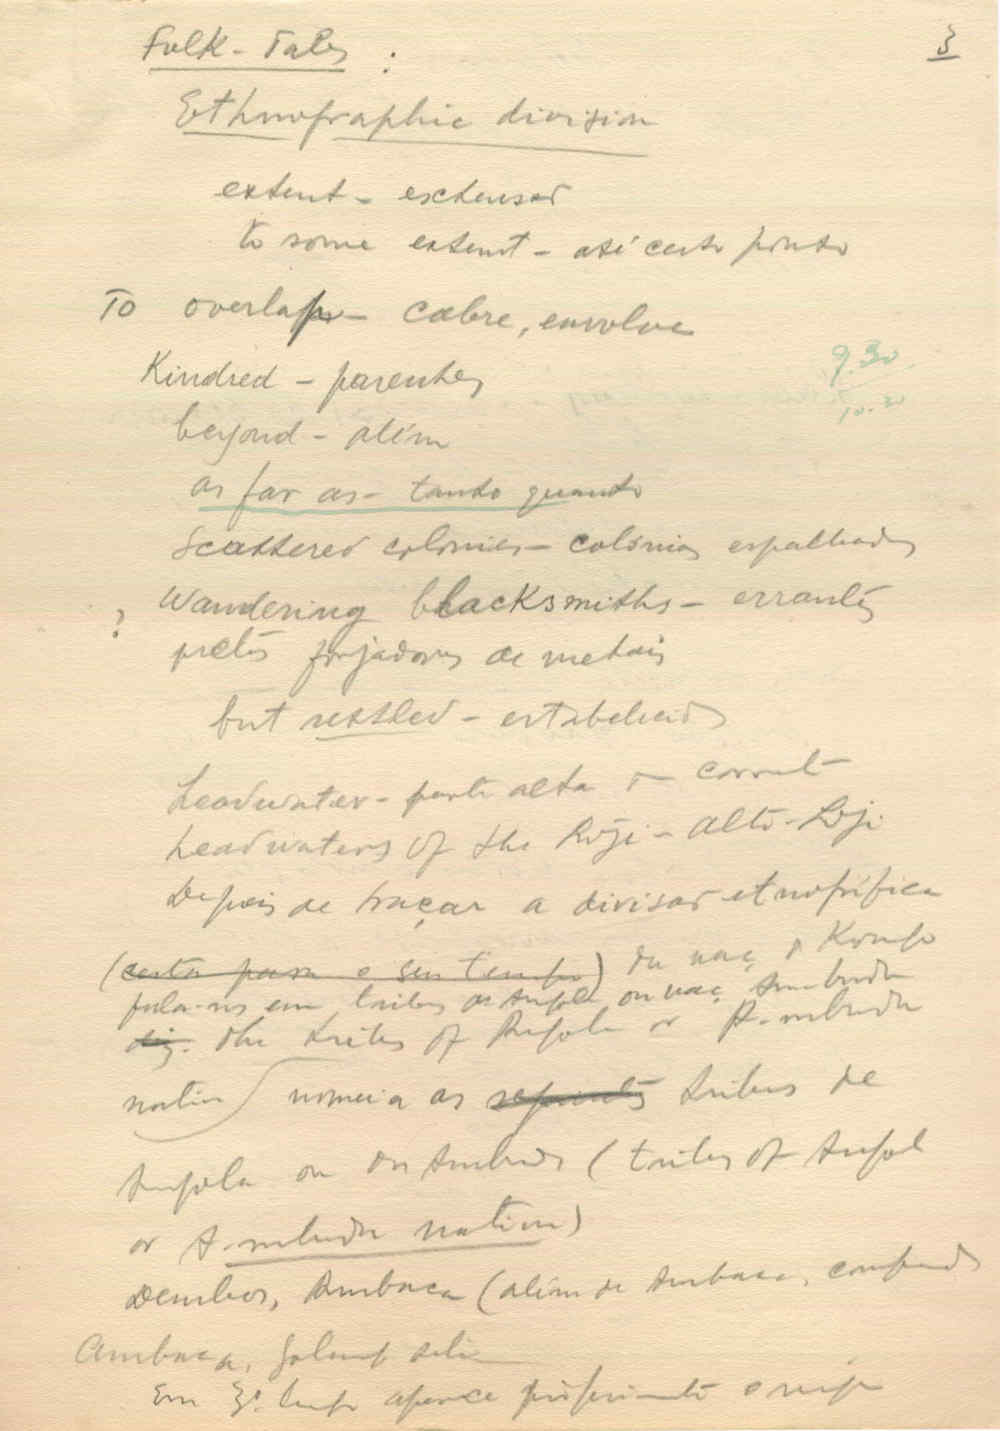 3
Folk-Tales :
Ethnographic division
extent - extensão
to some extent - até certo ponto
To overlap - cobre, envolve
Kindred - parentes
9.30
10.30
beyond - além
as far as - tanto quanto
Scattered colonies - colónias espalhadas
Wandering blacksmiths - errantes
? pretos forjadores de metais
but settled - estabelecidos
Headwater - parte alta
headwaters of the Loji - Alto-Loji
Depois de traçar a divisão etnográfica
(certa para o seu tempo) da naç. do Kongo
fala-nos em tribos de Angola ou naç. Ambunda
diz. the tribes of Angola or A-mbundu
nation nomeia as seguintes tribus de
Angola ou dos Ambundos (tribes of Angola
or A-mbundu nation)
Dembos, Ambaca (além de Ambaca,
Ambaca, Golungo Alto
Em aparece